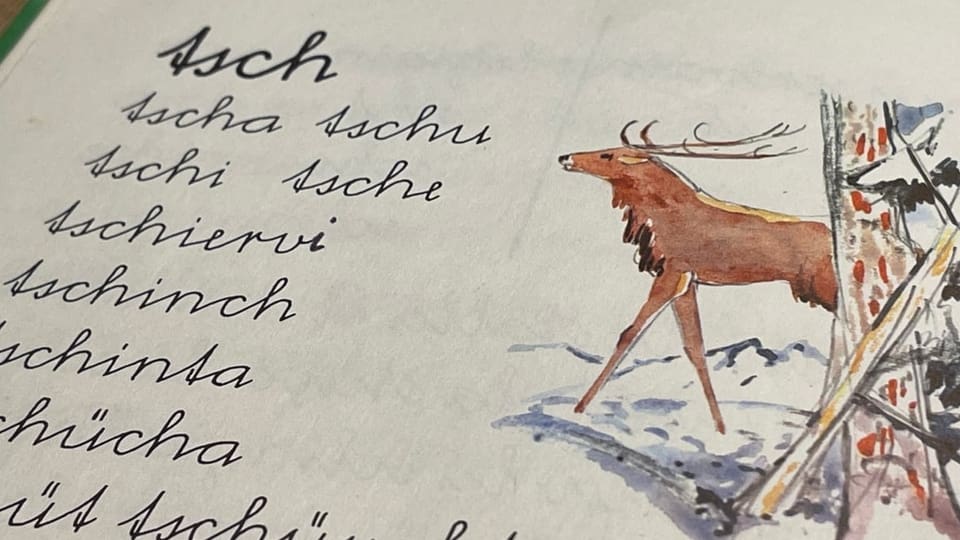 tsch
tscha tschu
tschi tsche
tschiervi
tschinch
schinta
chücha
üt